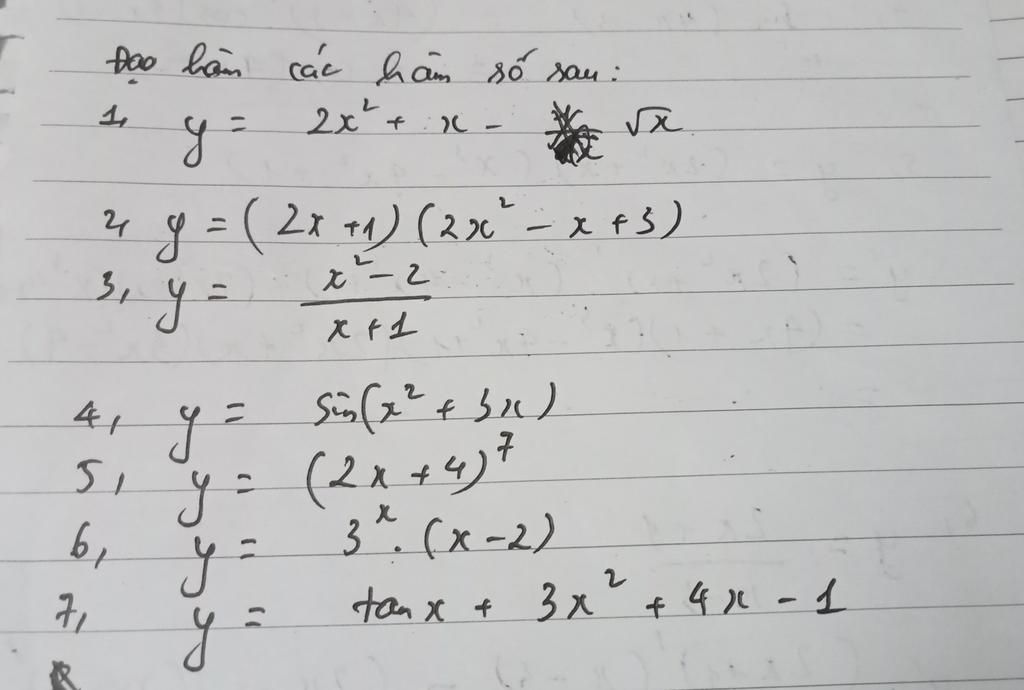 Đạo hàm các hàm số sau:
1, y = 2x² + x - √x
2, y = (2x+1)(2x² - x + 3)
3, y = \frac{x² - 2}{x + 1}
4, y = sin(x² + 3x)
5, y = (2x + 4)⁷
6, y = 3ˣ . (x - 2)
7, y = tan x + 3x² + 4x - 1